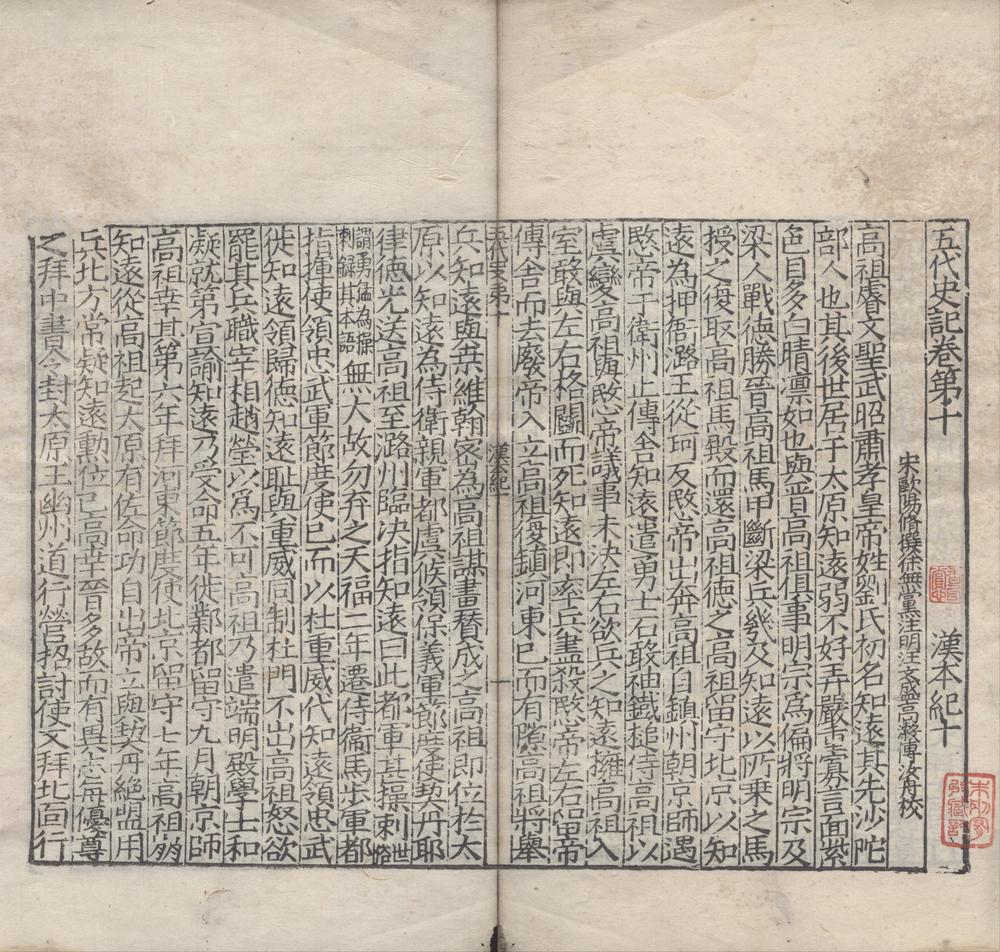 五代史記卷第十　漢本紀十
宋歐陽脩撰徐無黨注明汪文盛高瀔傅汝舟校
高祖睿文聖武昭肅孝皇帝姓劉氏初名知遠其先沙陀
部人也其後世居于太原知遠弱不好弄嚴重寡言面紫
色目多白睛凛如也與晉高祖俱事明宗為偏將明宗及
梁人戰德勝晉高祖馬甲斷梁兵幾及知遠以所乘之馬
授之復取高祖馬殿而還高祖德之高祖留守北京以知
遠為押衙潞王從珂反愍帝出奔高祖自鎮州朝京師遇
愍帝于衛州止傳舍知遠遣勇士石敢袖鐵槌侍高祖以
虞變高祖與愍帝議事未決左右欲兵之知遠擁高祖入
室敢與左右格鬬而死知遠即率兵盡殺愍帝左右留帝
傳舍而去廢帝入立高祖復鎮河東已而有隙高祖將舉
五代史第十　漢紀　一
兵知遠與桑維翰密為高祖謀畫賛成之高祖即位於太
原以知遠為侍衛親軍都虞候領保義軍節度使契丹耶
律德光送高祖至潞州臨決指知遠曰此都軍甚操剌世俗
謂勇猛為操剌錄其本語無大故勿弃之天福二年遷侍衛馬步軍都
指揮使領忠武軍節度使已而以杜重威代知遠領忠武
徙知遠領歸德知遠恥與重威同制杜門不出高祖怒欲
罷其兵職宰相趙瑩以爲不可高祖乃遣端明殿學士和
凝就第宣諭知遠乃受命五年徙鄴都留守九月朝京師
高祖幸其第六年拜河東節度使北京留守七年高祖崩
知遠從高祖起太原有佐命功自出帝立與契丹絶盟用
兵北方常疑知遠勳位已高幸晉多故而有異志每優尊
之拜中書令封太原王幽州道行營招討使又拜北面行